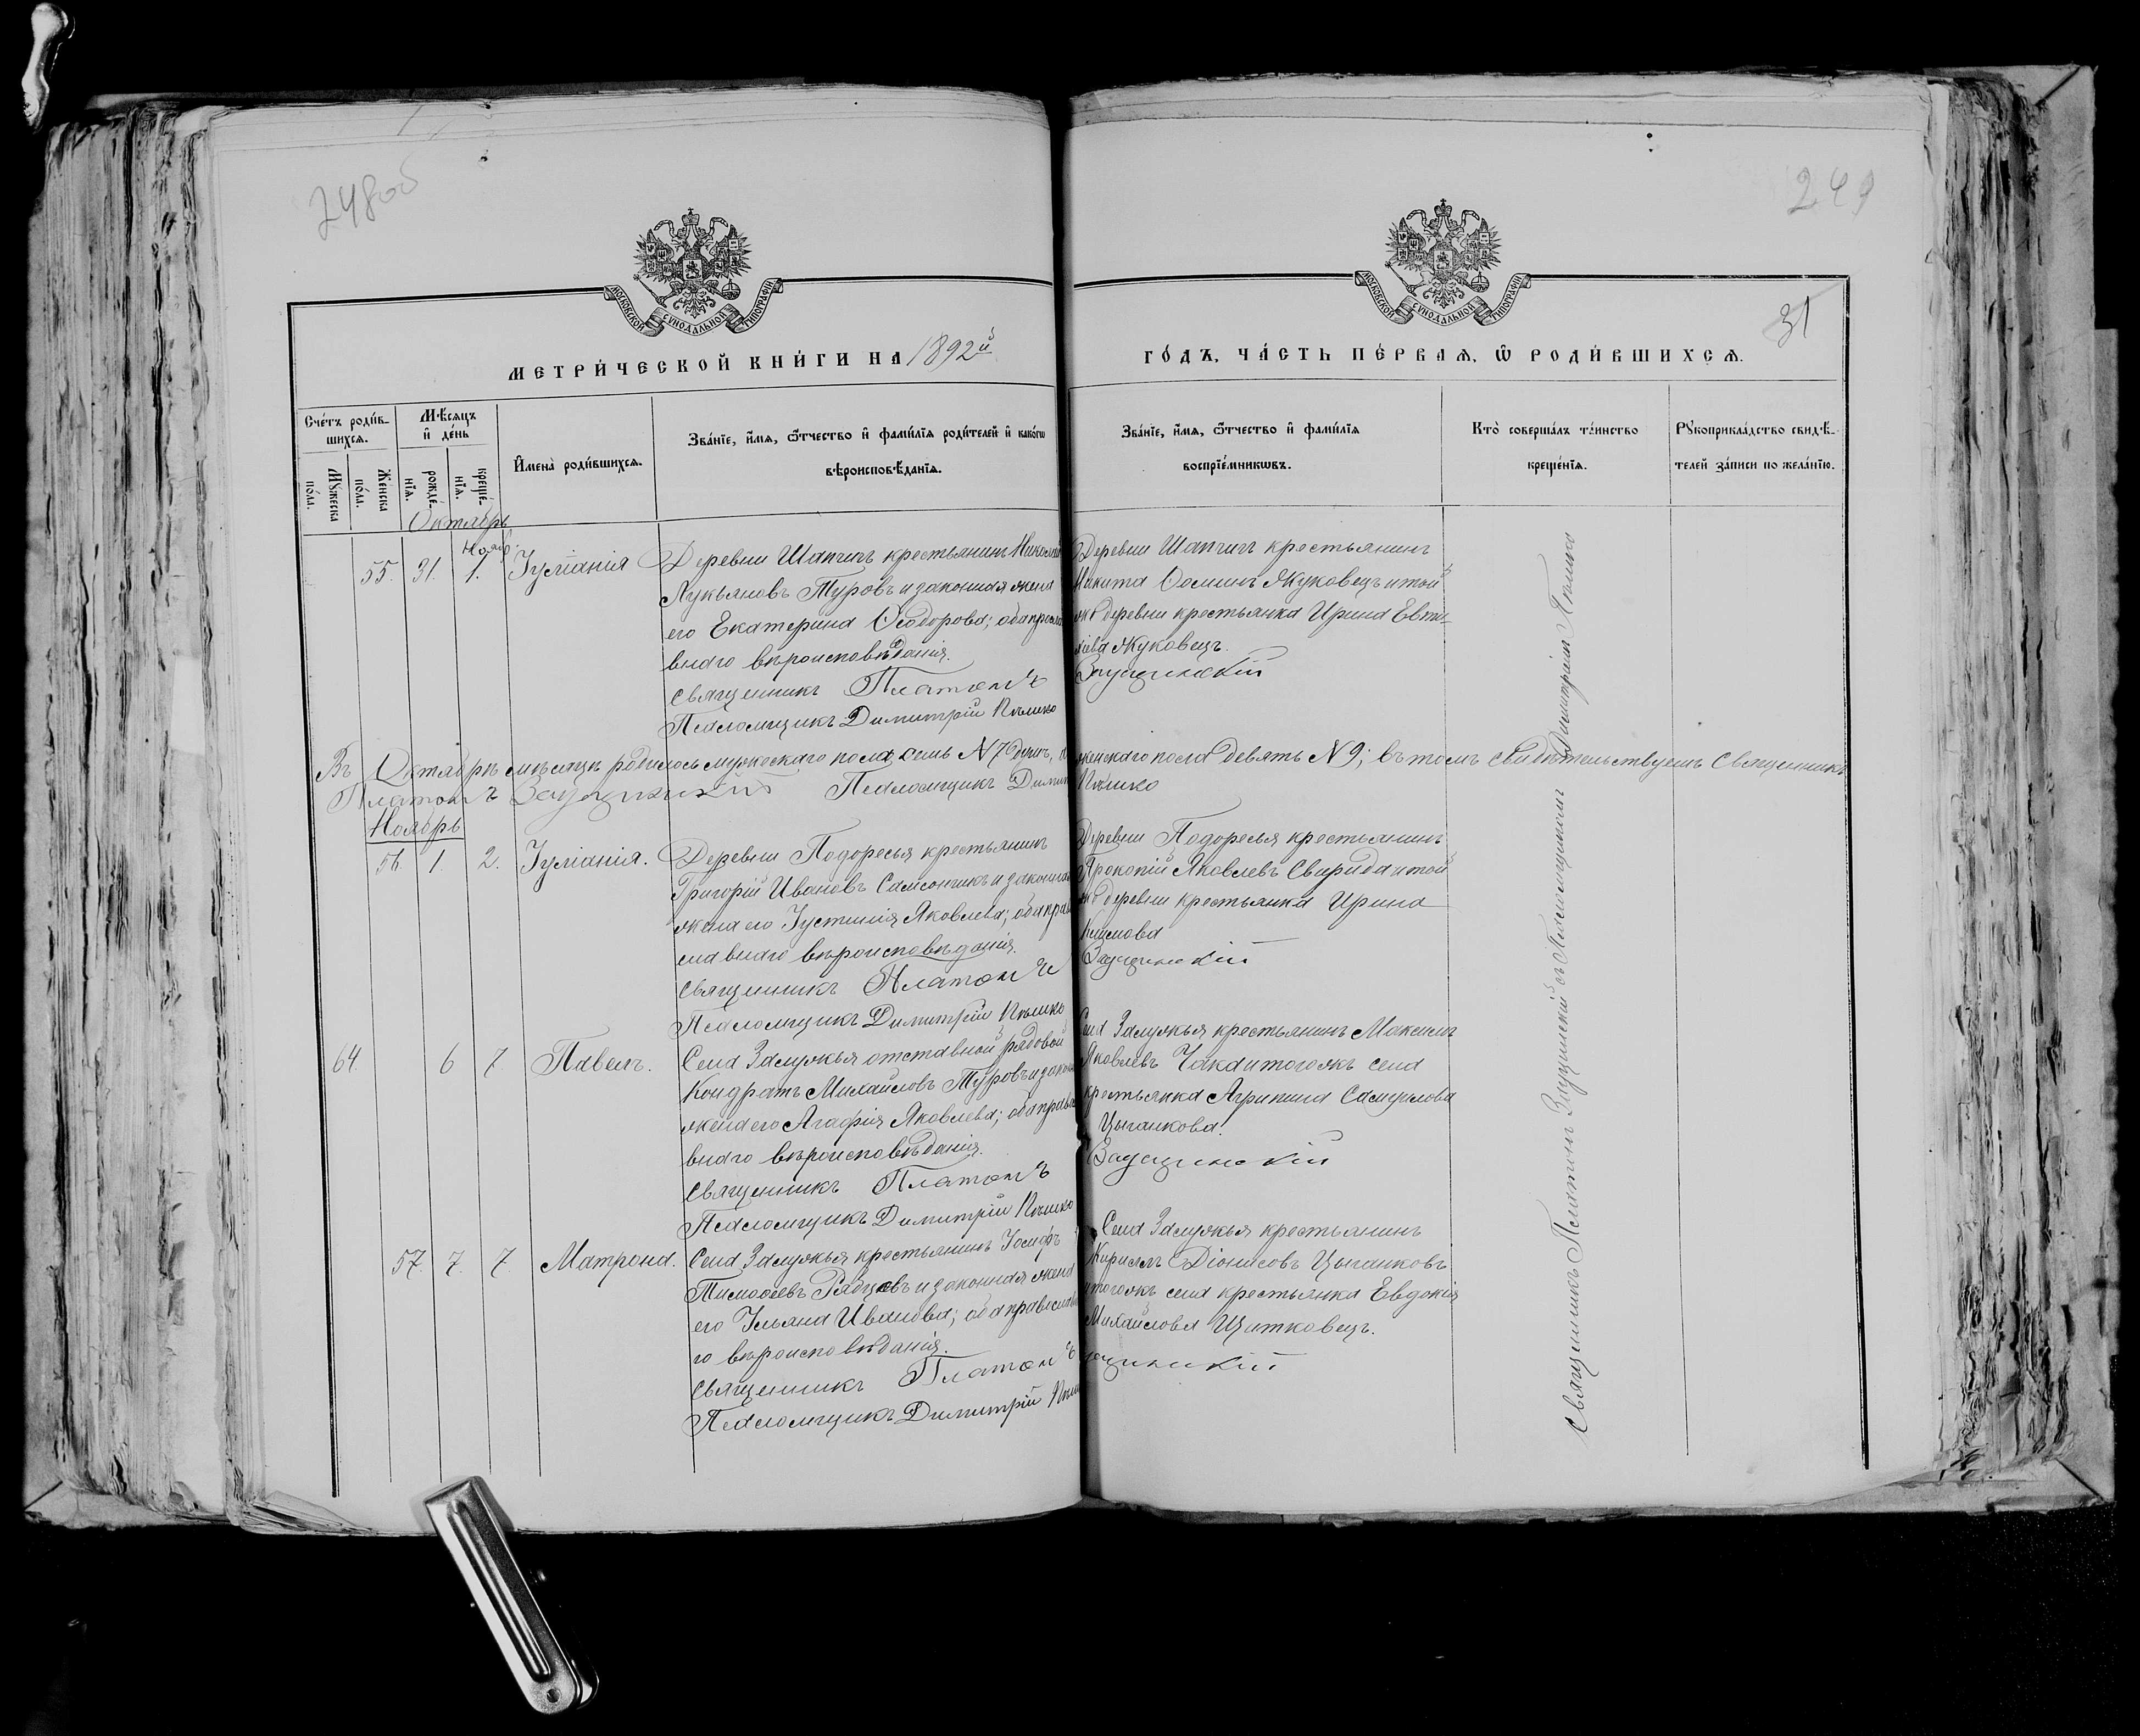 248об
249
31
МОСКОВСКОЙ СѴНОДАЛЬНОЙ ТИПОГРАФІИ
МОСКОВСКОЙ СѴНОДАЛЬНОЙ ТИПОГРАФІИ
МЕТРИ́ЧЕСКОЙ КНИ́ГИ НА 1892й
ГО́ДЪ, ЧА́СТЬ ПЕ́РВАѦ, Ѽ РОДИ́ВШИХСѦ.
Сче́тъ роди́в-
шихсѧ.
Мꙋжеска по́ла.
Же́нска по́ла.
Мѣ́сѧцъ
и҆ де́нь
рожде́-
нїѧ.
креще́-
нїѧ.
И҆мена̀ роди́вшихсѧ.
Зва́нїе, и҆́мѧ, ѻ҆́тчество и҆ фами́лїѧ роди́телей и҆ како́гѡ
вѣроисповѣ́данїѧ.
Зва́нїе, и҆́мѧ, ѻ҆́тчество и҆ фами́лїѧ
воспрїе́мникѡвъ.
Кто̀ соверша́лъ та́инство
креще́нїѧ.
Рꙋкоприкла́дство свидѣ́-
телей за́писи по жела́нїю.
Октябрь
Нояб.
55. 31. 1. Іуліанія
Деревни Шапчицъ крестьянинъ Николай
Лукьяновъ Туровъ и законная жена
его Екатерина Ѳеодорова; оба правосла
внаго вѣроисповѣданія.
Священникъ Платонъ
Псаломщикъ Димитрій Пышко
Деревни Шапчицъ крестьянинъ
Никита Ѳоминъ Жуковецъ и той
же деревни крестьянка Ирина Евти-
хіева Жуковецъ.
Заусцинскій
Въ Октябрѣ мѣсяцѣ родилось мужескаго пола семь N 7 душъ, а женскаго пола девять N 9; въ томъ свидѣтельствуетъ Священникъ
Платонъ Заусцинскій Псаломщикъ Димитрій Пышко
Ноябрь
56. 1. 2. Іуліанія.
Деревни Подоресья крестьянинъ
Григорій Ивановъ Самсончикъ и законная
жена его Іустинія Яковлева; оба право
славнаго вѣроисповѣданія.
Священникъ Платонъ
Псаломщикъ Димитрій Пышко
Деревни Подоресья крестьянинъ
Прокопій Яковлевъ Свирида и той
же деревни крестьянка Ирина
Заусцинскій
64 6 7 Павелъ.
Села Замужья отставной рядовой
Кондратъ Михайловъ Туровъ и законная
жена его Агафія Яковлева; оба правосла
внаго вѣроисповѣданія.
Священникъ Платонъ
Псаломщикъ Димитрій Пышко
Села Замужья крестьянинъ Максимъ
Яковлевъ Чака и тогожъ села
крестьянка Агрипина Самуилова
Цыганкова.
Заусцинскій
57. 7. 7. Матрона.
Села Замужья крестьянинъ Іосифъ
Тимоѳеевъ Рябцевъ и законная жена
его Ульяна Иванова; оба православна
го вѣроисповѣданія.
Священникъ Платонъ
Псаломщикъ Димитрій Пышко
Села Замужья крестьянинъ
Кириллъ Діонисовъ Цыганковъ
и тогожъ села крестьянка Евдокія
Михайлова Щитковецъ.
Заусцинскій
Священникъ Платонъ Заусцинскій съ Псаломщикомъ Димитріемъ Пышко